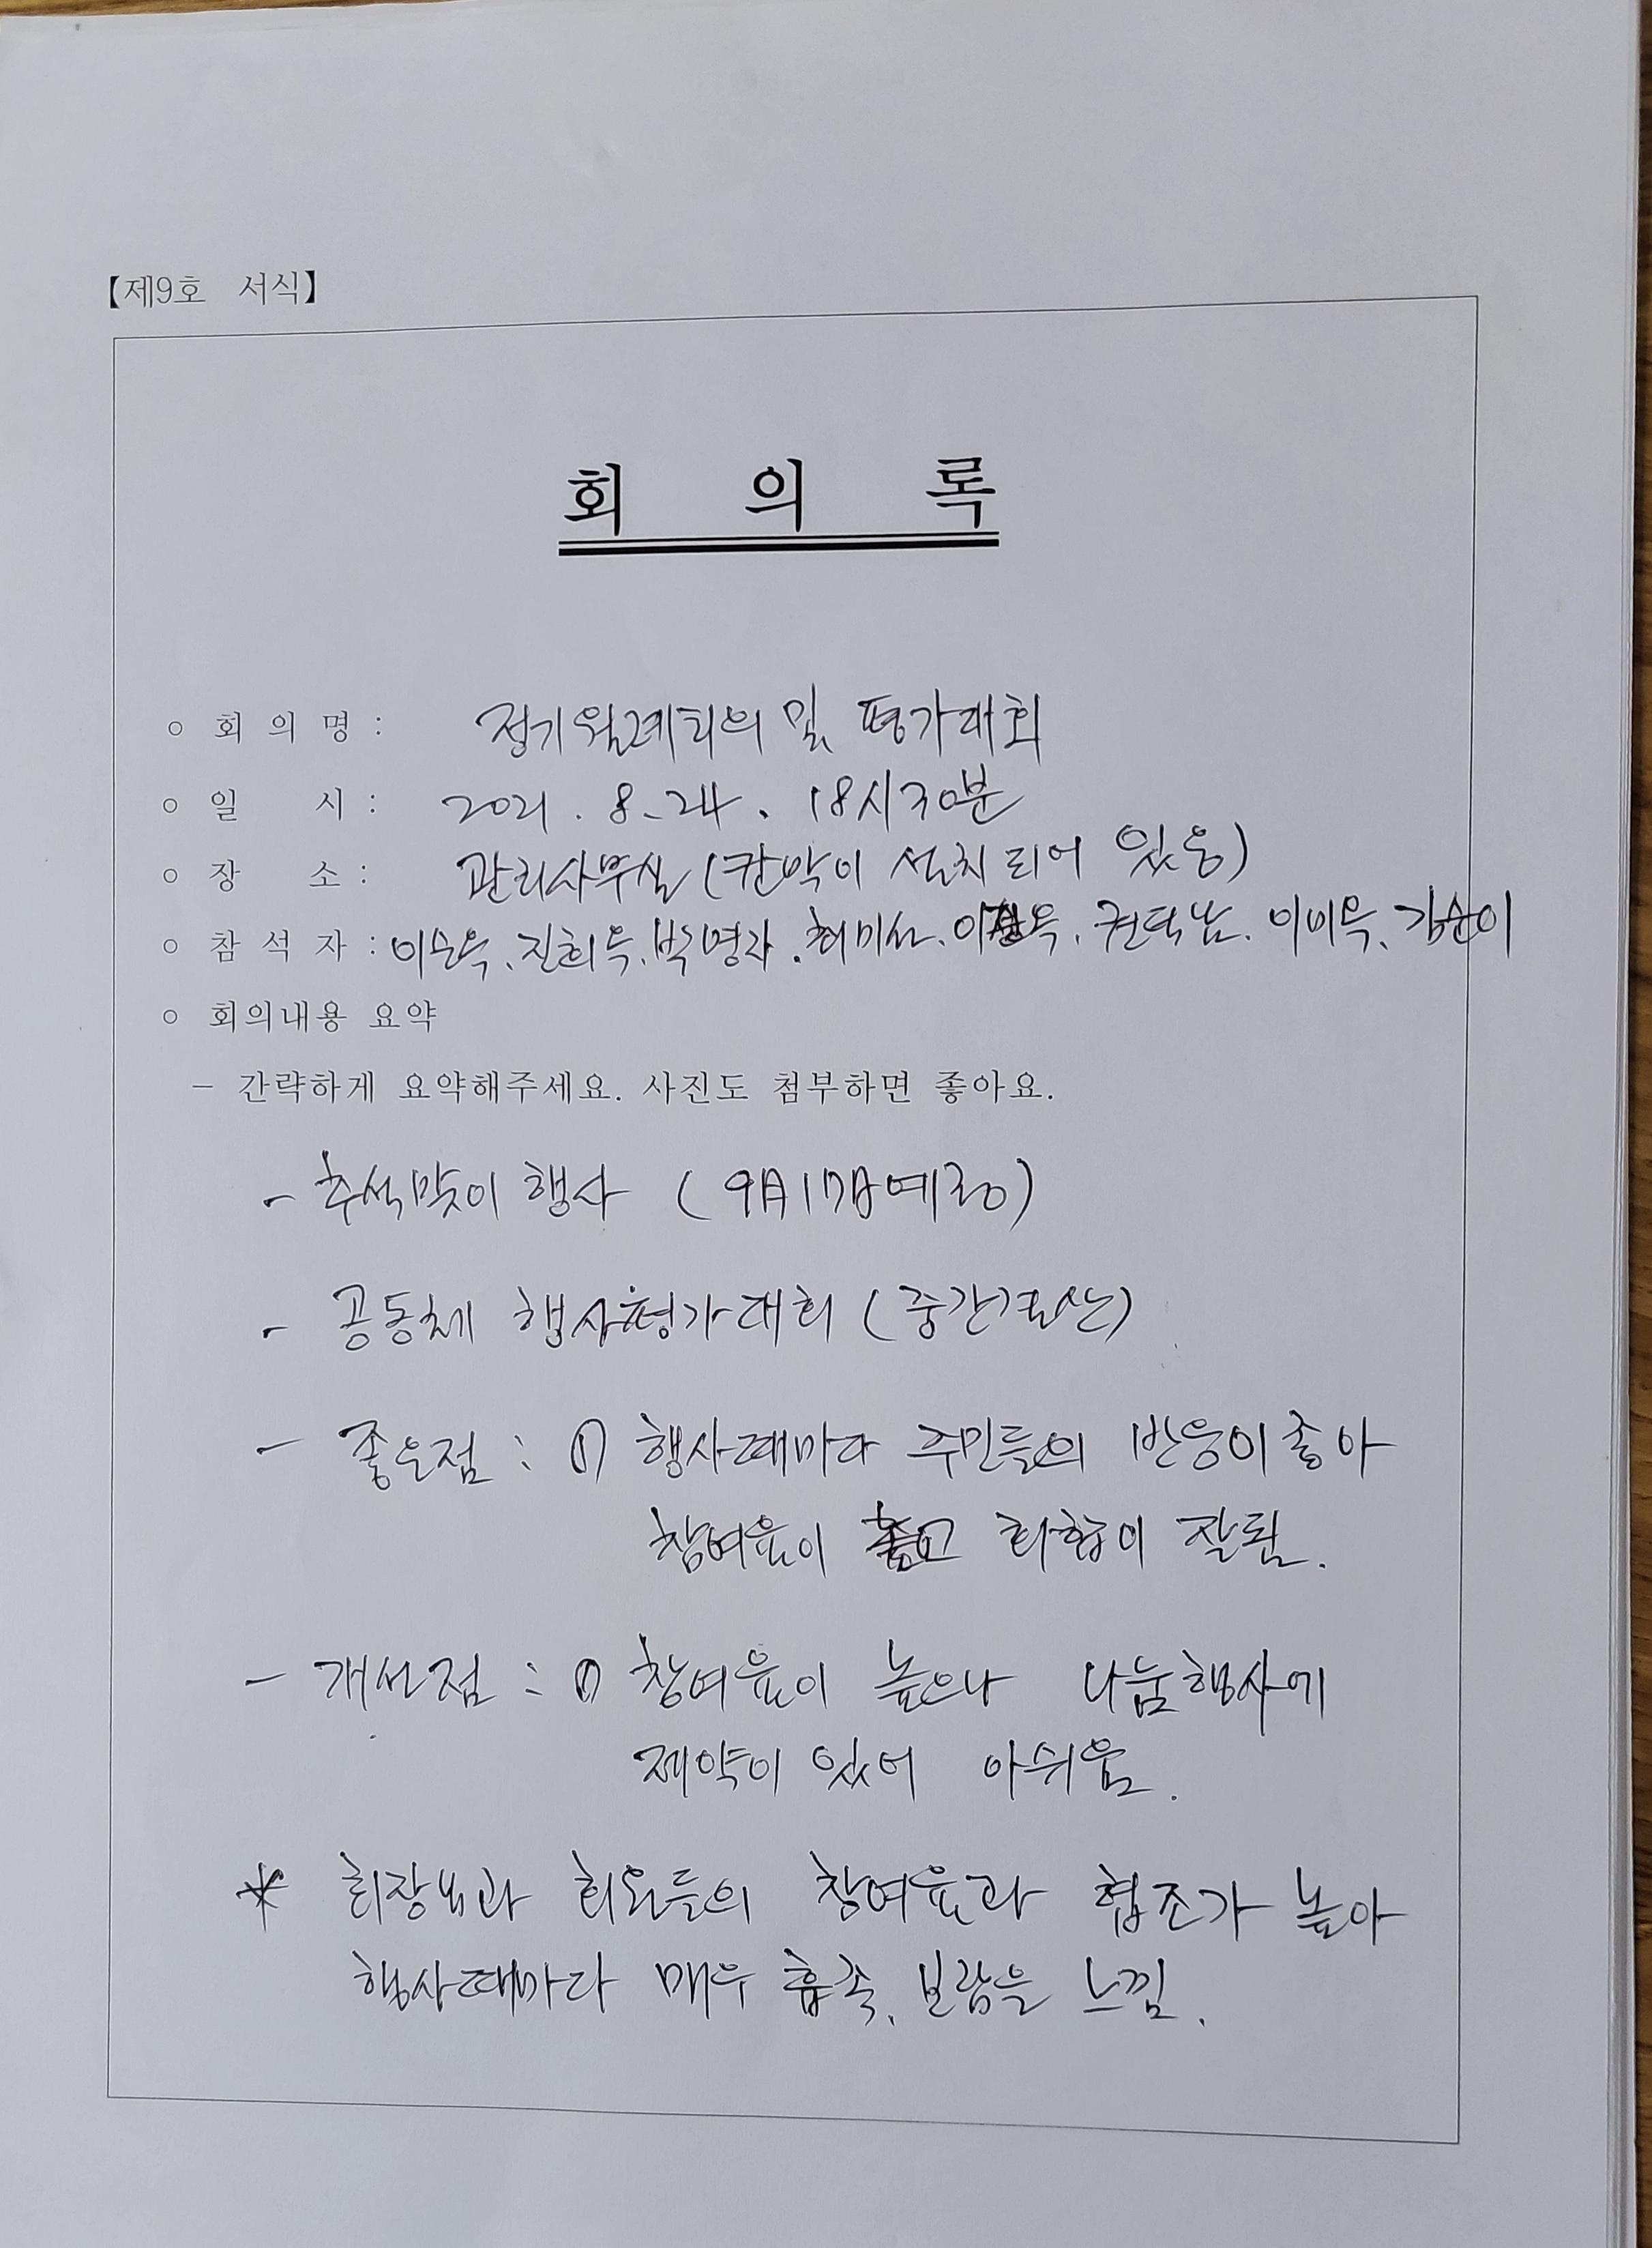 【제9호 서식】
회 의 록
○ 회 의 명 : 정기월례회의 및 평가대회
○ 일 시 : 2021. 8. 24. 18시30분
○ 장 소 : 관리사무실 (칸막이 설치 되어 있음)
○ 참 석 자 : 이순옥, 진희득, 박명자, 최미선, 권덕남, 이미옥, 김순이
○ 회의내용 요약
- 간략하게 요약해주세요. 사진도 첨부하면 좋아요.
- 추석맞이 행사 (9月17日예정)
- 공동체 행사평가대회 (중간결산)
- 좋은점 : ① 행사때마다 주민들의 반응이 좋아
참여율이 높고 화합이 잘됨.
- 개선점 : ① 참여율이 높으나 나눔행사에
제약이 있어 아쉬움.
* 회장님과 회원들의 참여율과 협조가 높아
행사때마다 매우 흡족, 보람을 느낌.